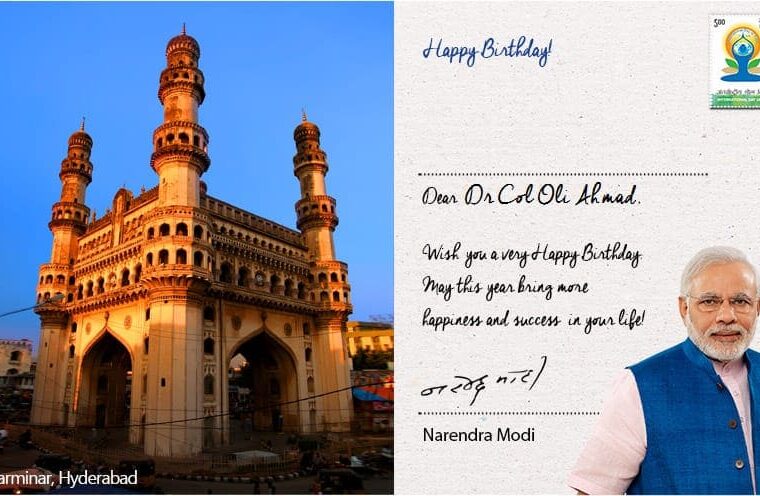 Happy Birthday!
500
INTERNATIONAL DAY
Dear Dr Col Oli Ahmad.
Wish you a very Happy Birthday.
May this year bring more
happiness and success in your life!
नरेन्द्र मोदी
Narendra Modi
arminar, Hyderabad